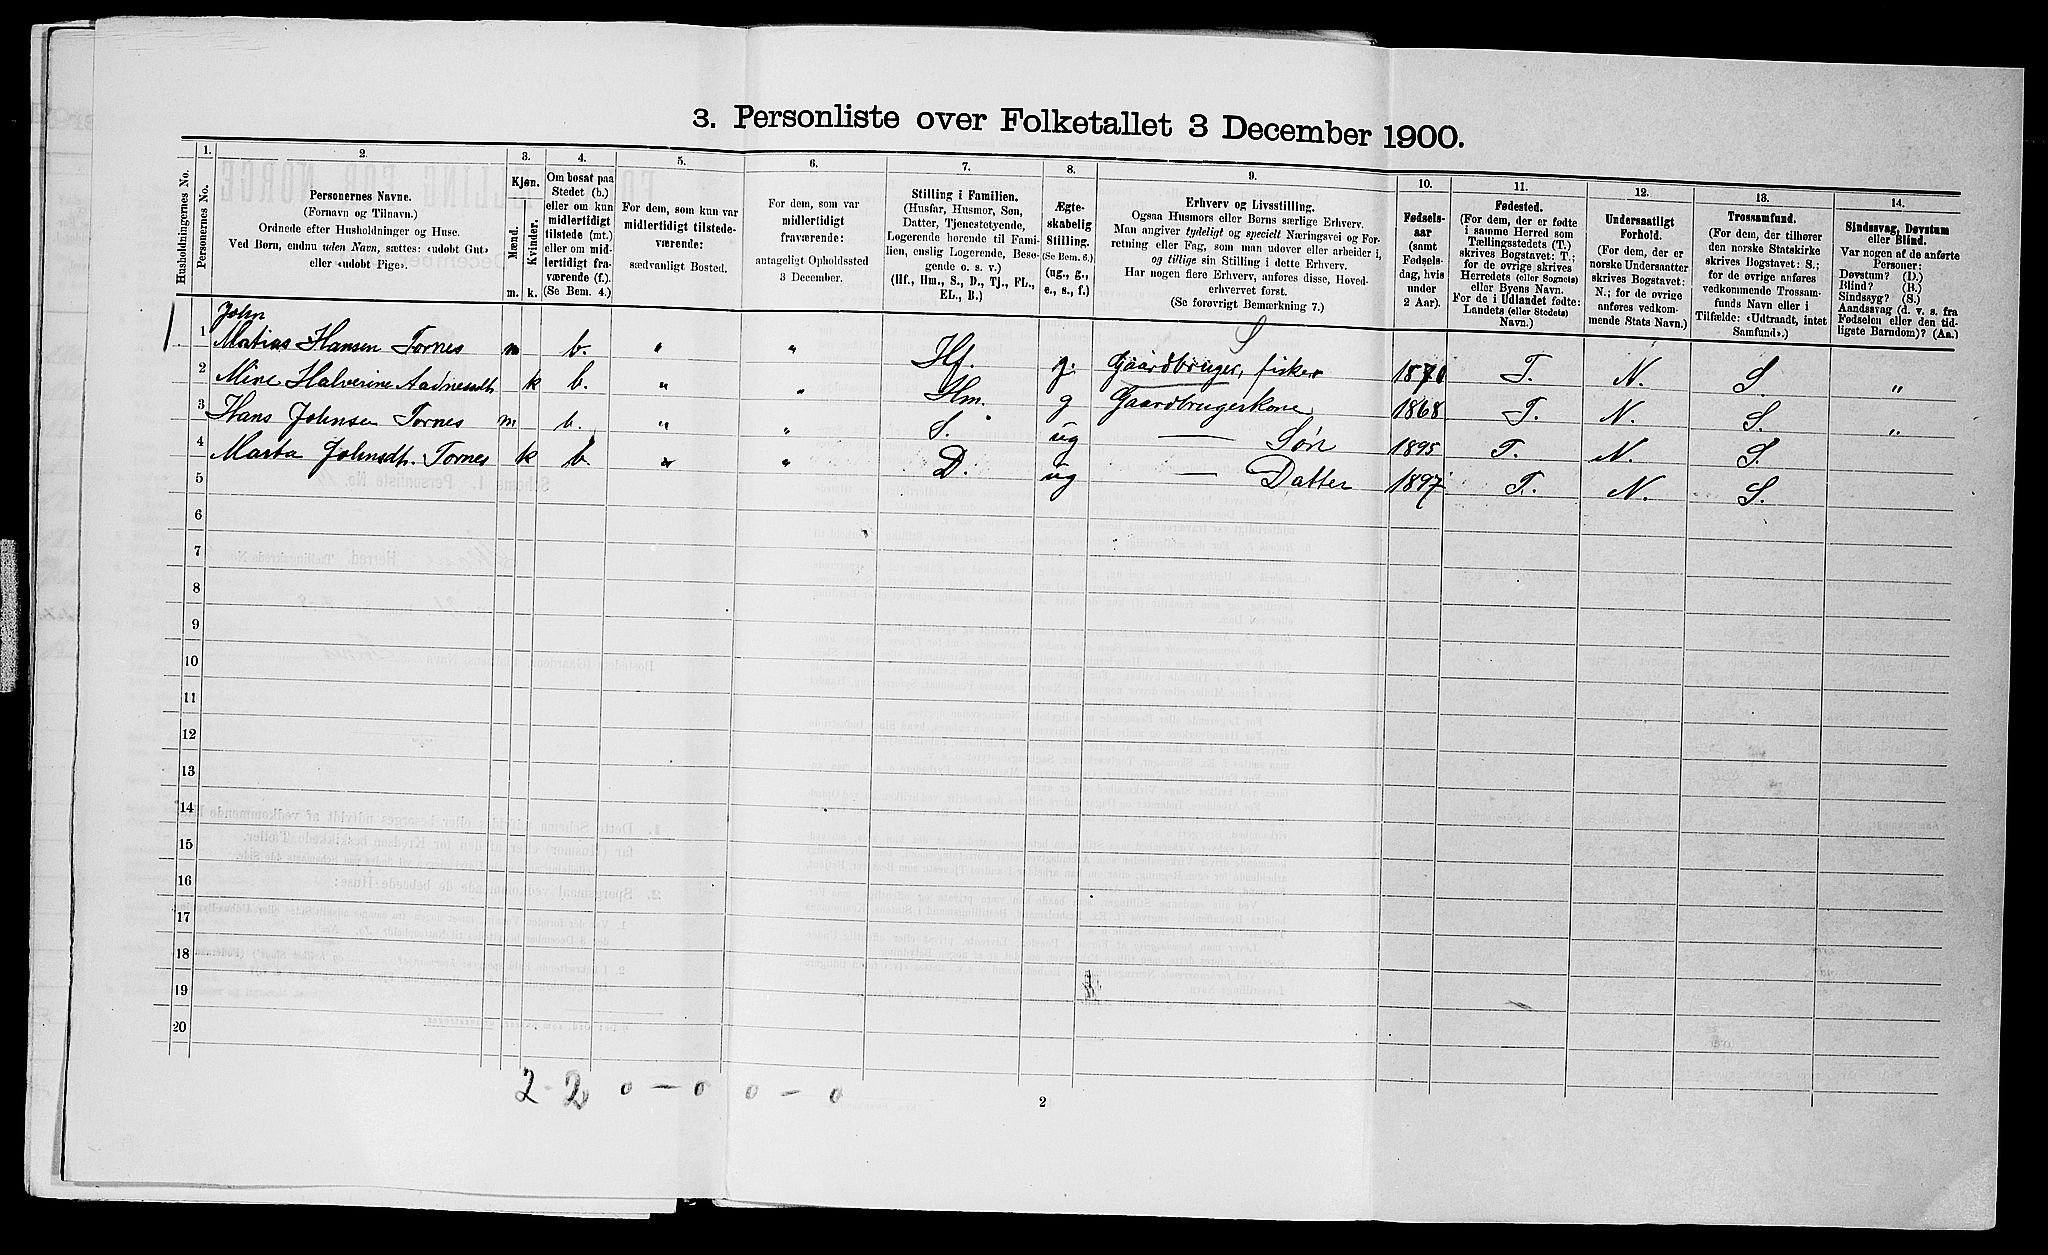 3. Personliste over Folketallet 3 December 1900.
Husholdningernes No.
1.
Personernes No.
2.
Personernes Navne.
(Fornavn og Tilnavn.)
Ordnede efter Husholdninger og Huse.
Ved Børn, endnu uden Navn, sættes: «udøbt Gut»
eller «udøbt Pige».
3.
Kjøn.
Mænd.
Kvinder.
m.
k.
4.
Om bosat paa
Stedet (b.)
eller om kun
midlertidigt
tilstede (mt.)
eller om mid-
lertidigt fra-
værende (f.).
(Se Bem. 4.)
5.
For dem, som kun var
midlertidigt tilstede-
værende:
sædvanligt Bosted.
6.
For dem, som var
midlertidigt
fraværende:
antageligt Opholdssted
3 December.
7.
Stilling i Familien.
(Husfar, Husmor, Søn,
Datter, Tjenestetyende,
Logerende hørende til Fami-
lien, enslig Logerende, Besø-
gende o. s. v.)
(Hf., Hm., S., D., Tj., FL.,
EL., B.)
8.
Ægte-
skabelig
Stilling.
(Se Bem. 6.)
(ug., g.,
e., s., f.)
9.
Erhverv og Livsstilling.
Ogsaa Husmors eller Børns særlige Erhverv.
Man angiver tydeligt og specielt Næringsvei og For-
retning eller Fag, som man udøver eller arbeider i,
og tillige sin Stilling i dette Erhverv.
Har nogen flere Erhverv, anføres disse, Hoved-
erhvervet forst.
(Se forøvrigt Bemærkning 7.)
10.
Fødsels-
aar
(samt
Fødsels-
dag, hvis
under
2 Aar).
11.
Fødested.
(For dem, der er fødte
i samme Herred som
Tællingsstedets (T.)
skrives Bogstavet: T.;
for de øvrige skrives
Herredets (eller Sognets)
eller Byens Navn.
For de i Udlandet fødte:
Landets (eller Stedets)
Navn.)
12.
Undersaatligt
Forhold.
(For dem, der er
norske Undersaatter
skrives Bogstavet:
N.; for de øvrige
anføres vedkom-
mende Stats Navn.)
13.
Trossamfund.
(For dem, der tilhører
den norske Statskirke
skrives Bogstavet: S.;
for de øvrige anføres
vedkommende Trossam-
funds Navn eller i
Tilfælde: «Udtraadt, intet
Samfund».)
14.
Sindssvag, Døvstum
eller Blind.
Var nogen af de anførte
Personer:
Døvstum? (D.)
Blind? (B.)
Sindssyg? (S.)
Aandssvag (d. v. s. fra
Fødselen eller den tid-
ligste Barndom)? (Aa.)
John
1 1 Matias Hansen Tornes m b. " " Hf. g. Gaardbruger, fisker S 1870 T. N. S. "
2 Mine Halverine Aadnesdt k b. " " Hm. g Gaardbrugerskone 1868 T. N. S. "
3 Hans Johnsen Tornes m b. " " S. ug — Søn 1895 T. N. S.
4 Marta Johnsdt. Tornes k b " " D. ug — Datter 1897 T. N. S.
5
6
7
8
9
10
11
12
13
14
15
16
17
18
19
20
2-2 0-0 0-0
2